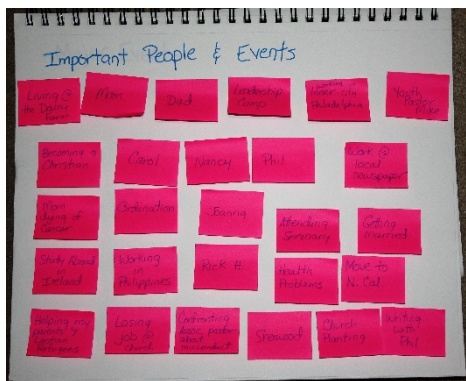 Important People & Events
Living @
the Dairy
Farm
Mom
Dad
Leadership
Camp
Inner-city
Philadelphia
Youth
Pastor
Mike
Becoming a
Christian
Carol
Nancy
Phil
Work @
local
newspaper
Mom
dying of
Cancer
Ordination
Joanna
Attending
Seminary
Getting
Married
Study Abroad
in
Ireland
Working
in
Philippines
Rick H
Health
Problems
Move to
N. Cal
Helping my
parents &
Refugees
Losing
job @
church
Confronting
pastor
about
misconduct
Sherwood
Church
Planting
writing
with
Phil